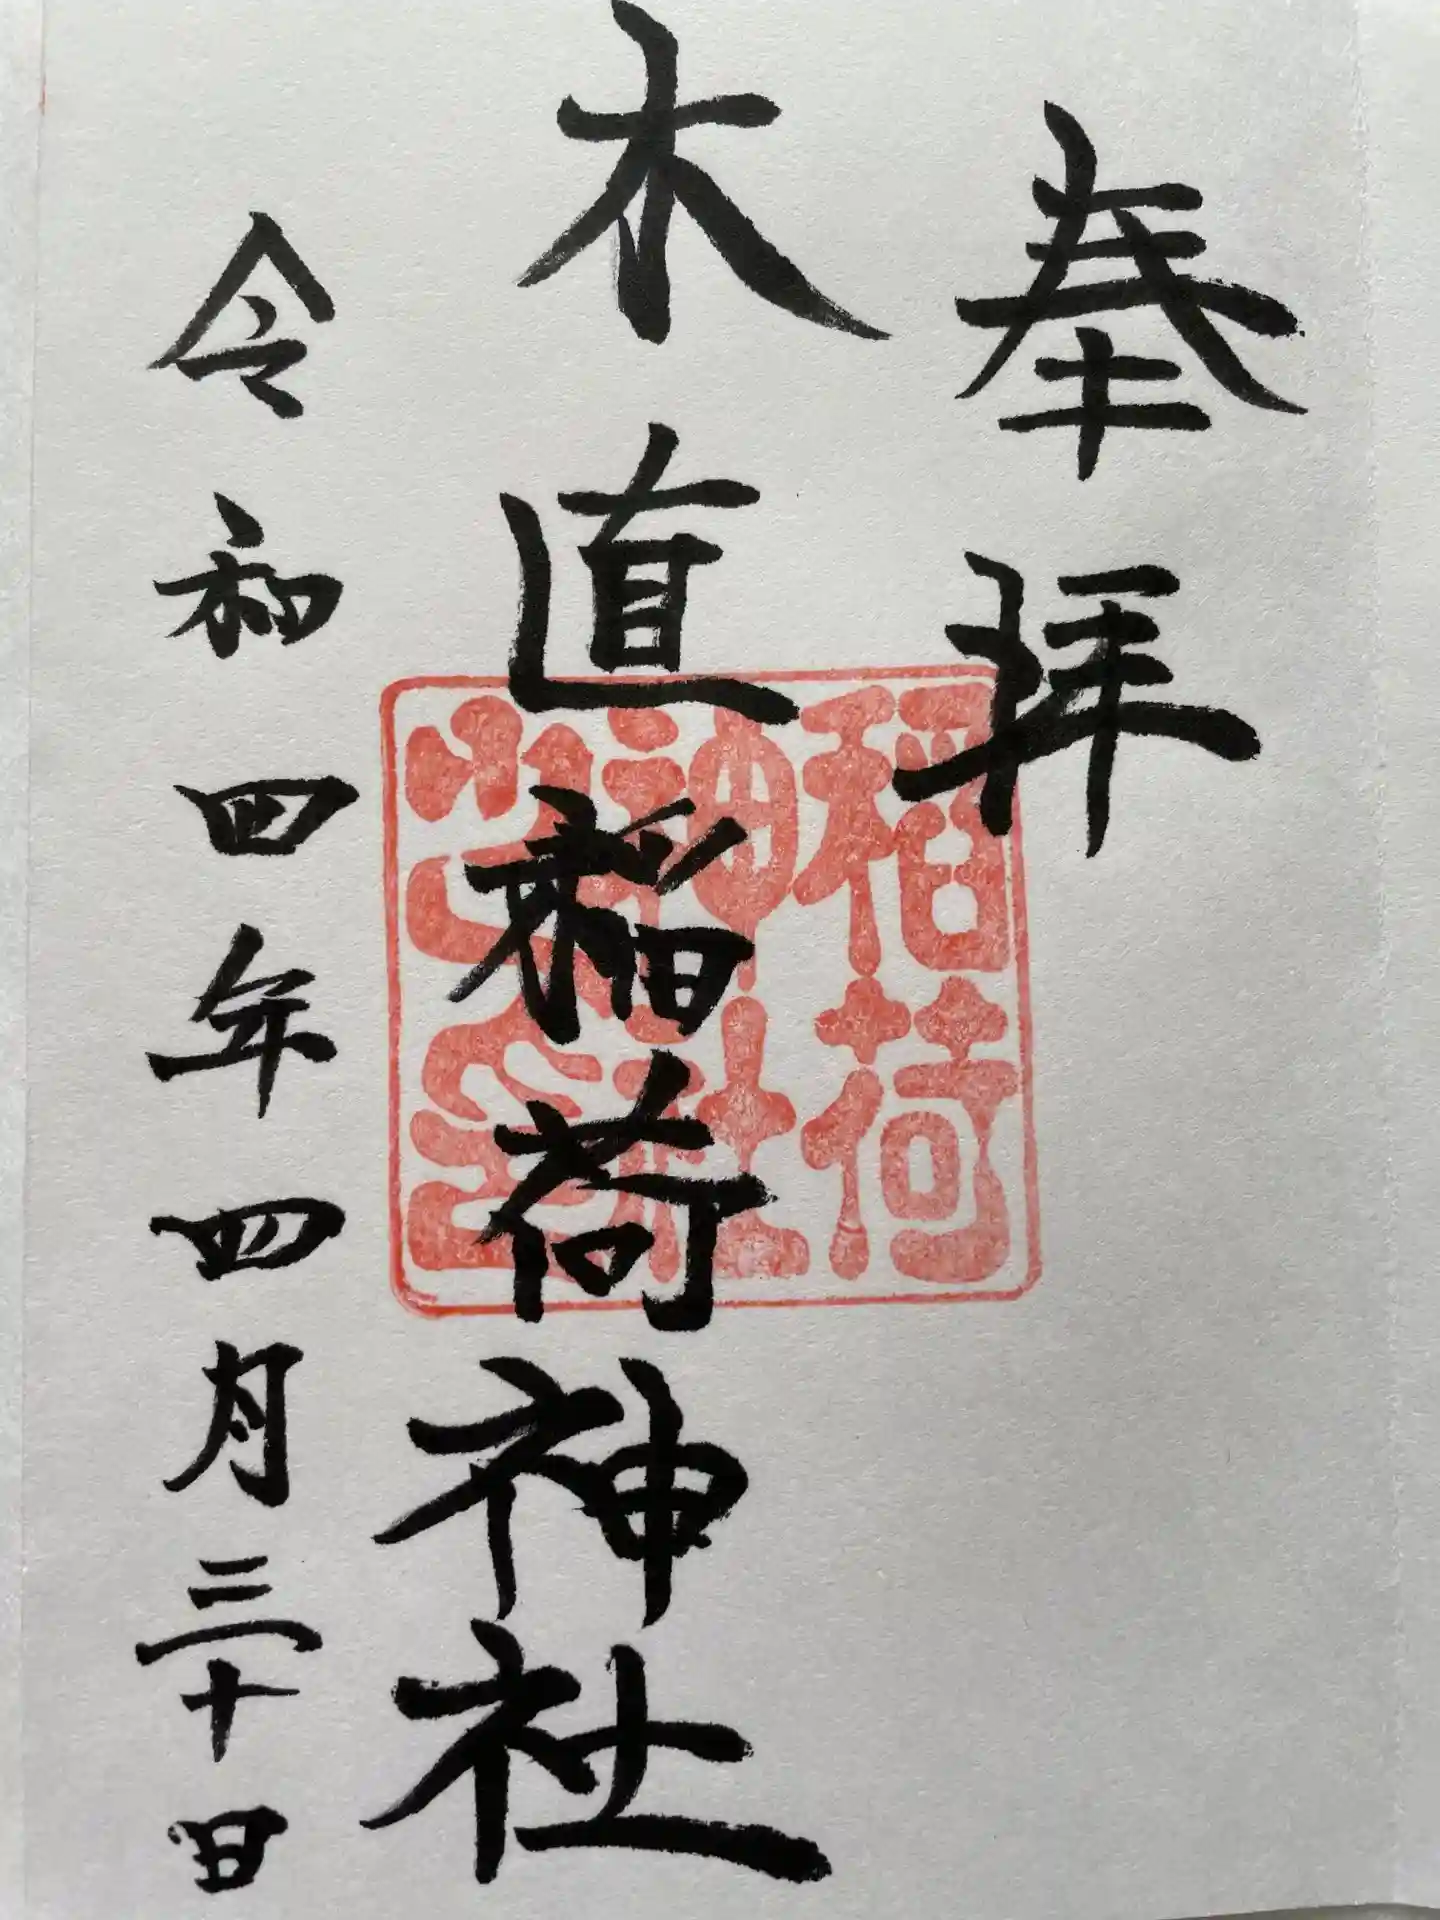 奉拝
木直稲荷神社
稲荷
神社
令和四年四月三十日